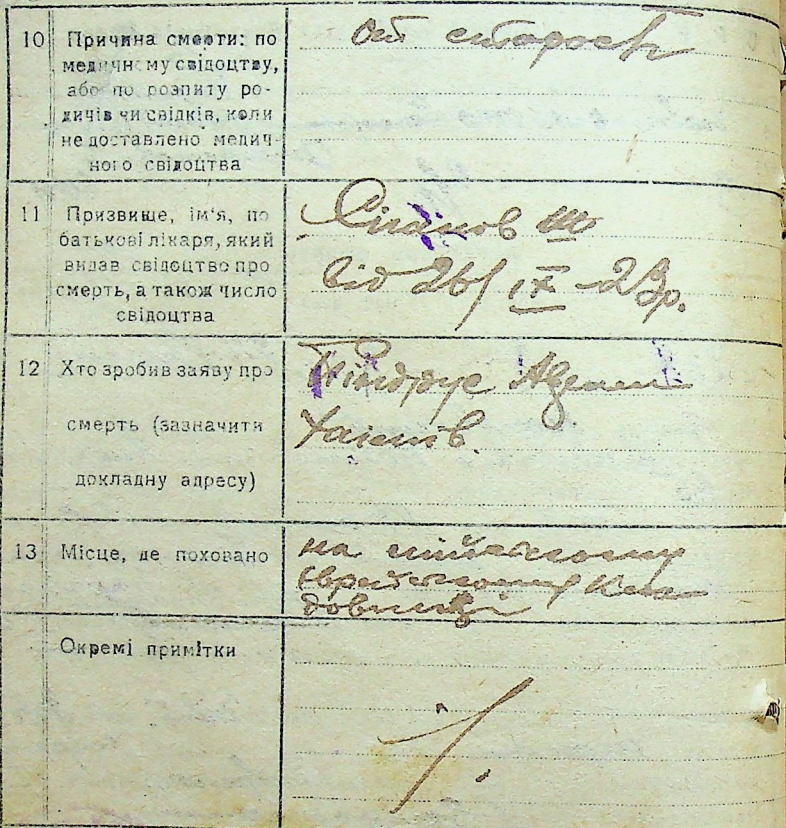 10 Причина смерти: по
медичному свідоцтву,
або по розпиту ро-
дичів чи свідків, коли
не доставлено медич-
ного свідоцтва
от старость
11 Призвище, ім'я, по
батькові лікаря, який
видав свідоцтво про
смерть, а також число
свідоцтва
від 26/IX-28р.
12 Хто зробив заяву про
смерть (зазначити
докладну адресу)
13 Місце, де поховано
на міському
єврейському кла
довищі
Окремі примітки